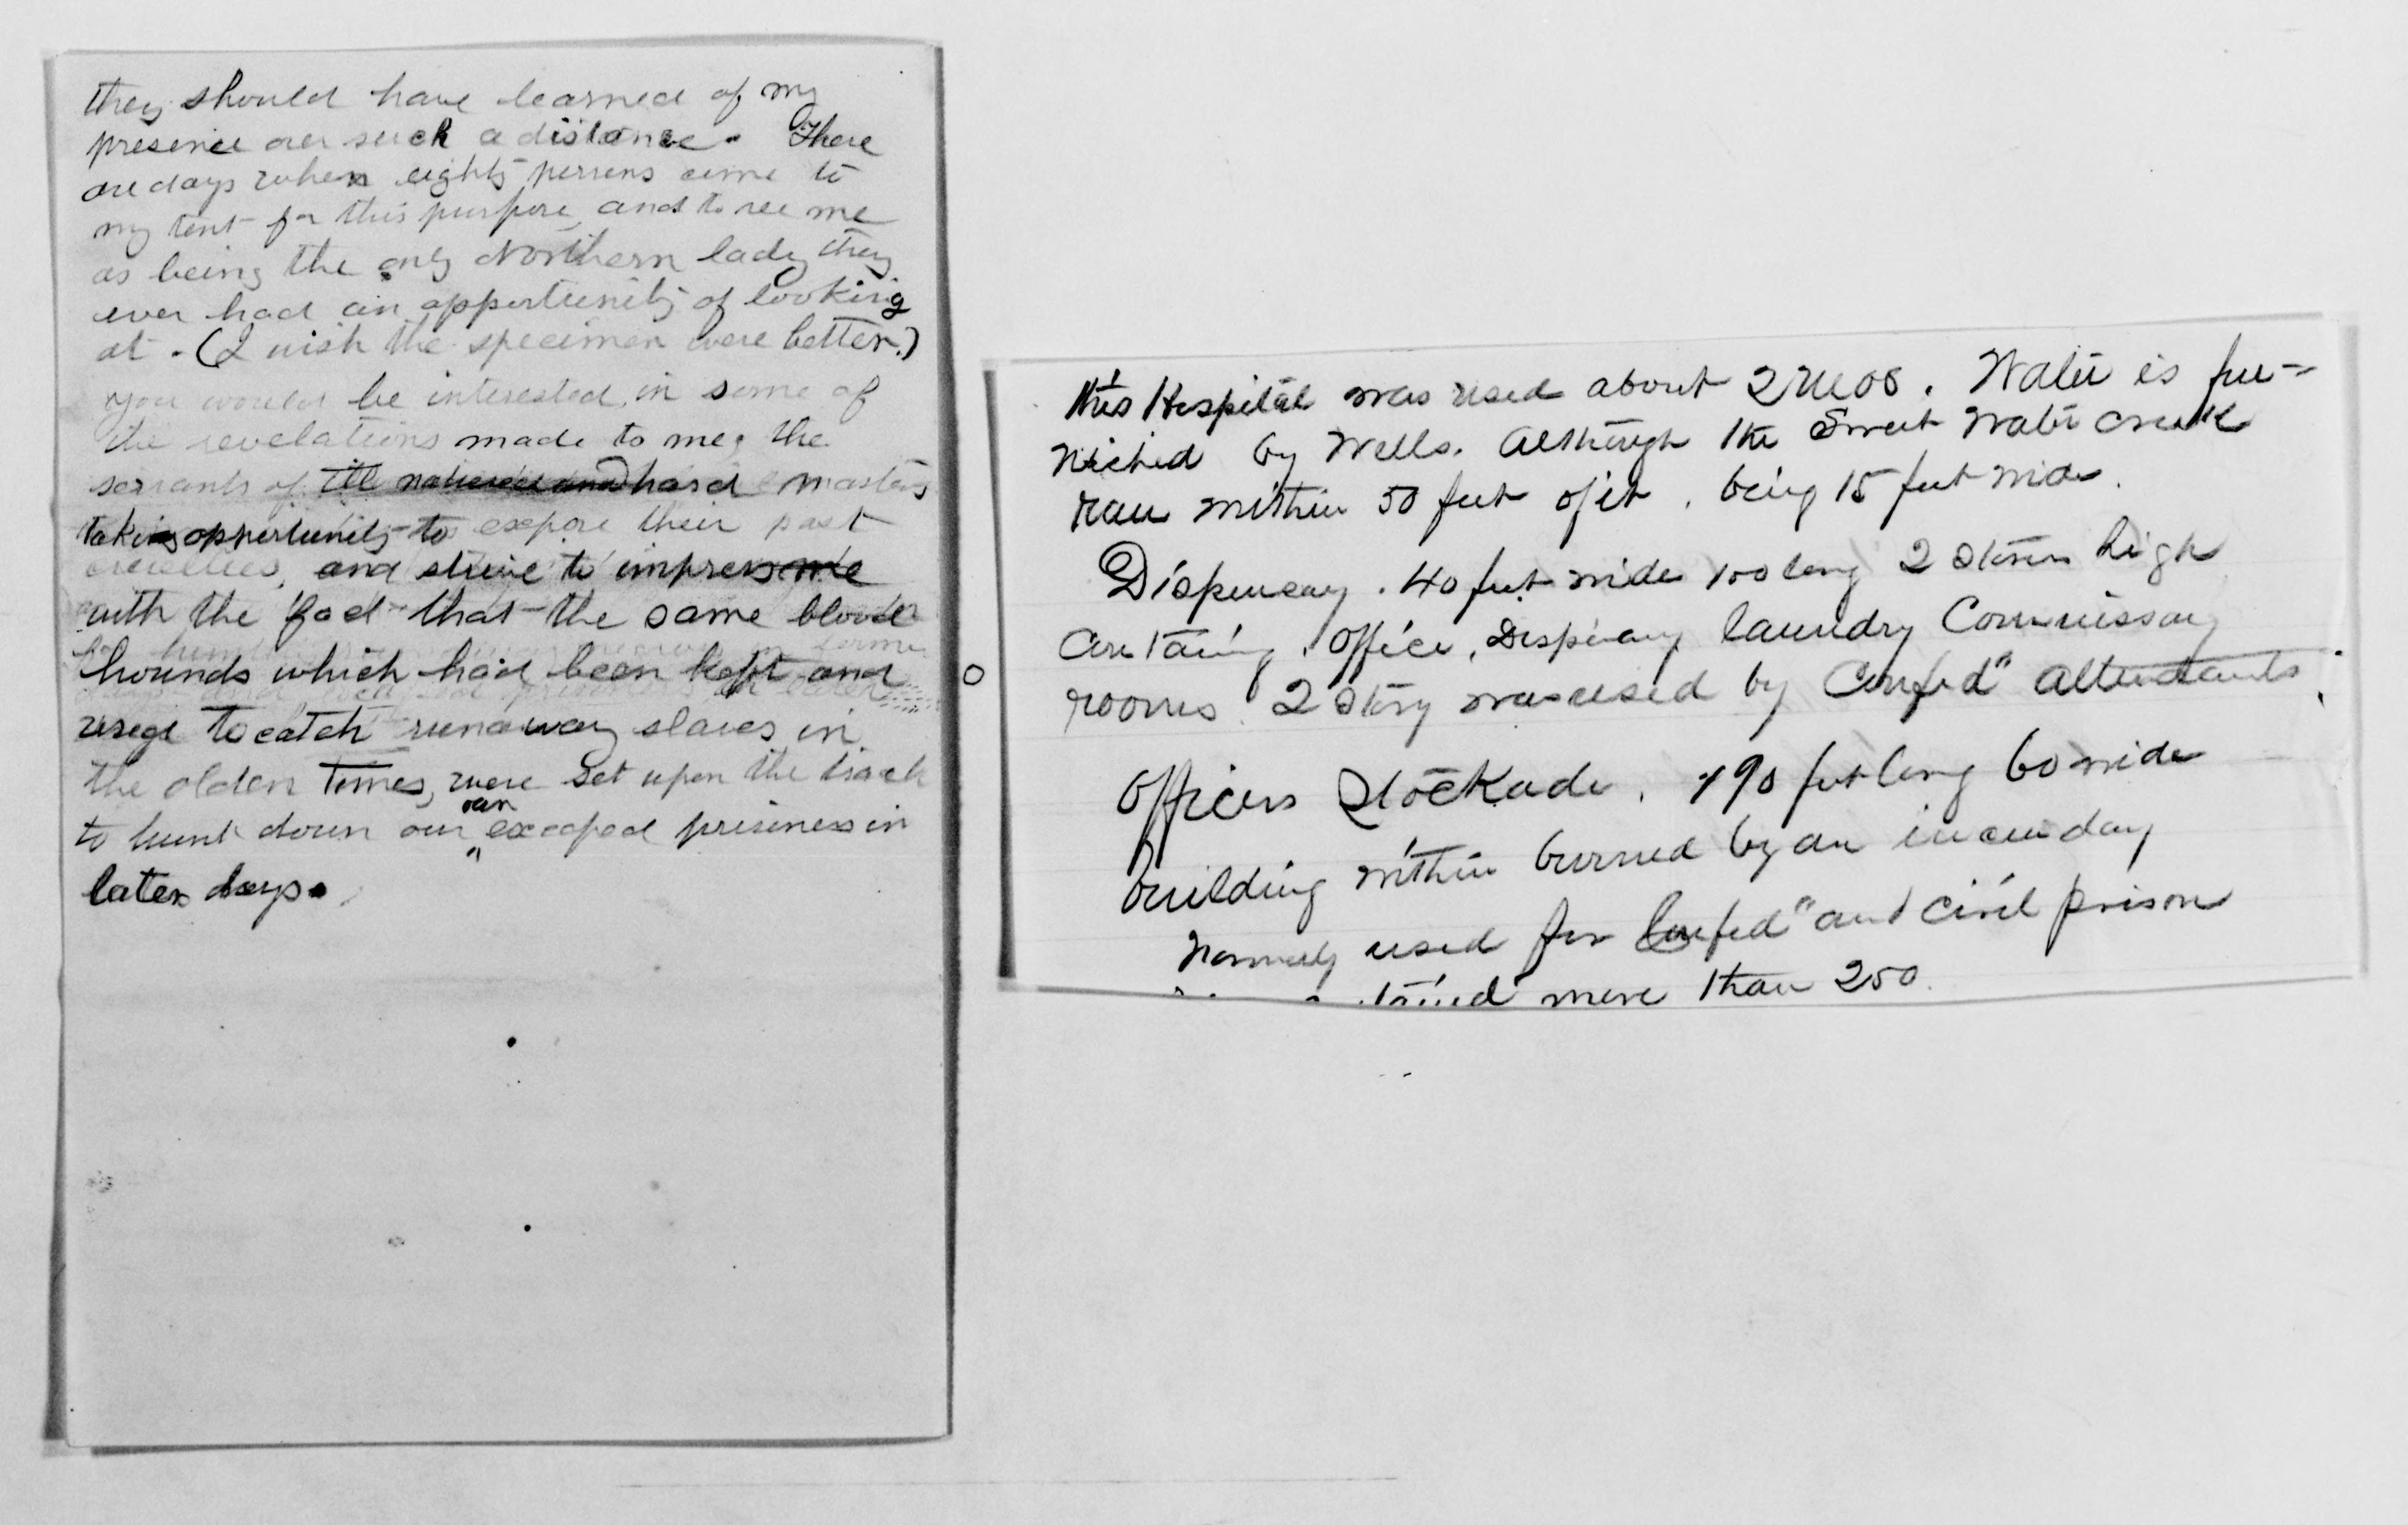 they should have learned of my
presence over such a distance. There
are days when eighty persons come to
my tent for this purpose, and to see me
as being the only Northern lady they
ever had an opportunity of looking
at. (I wish the specimen were better.)
you would be interested in some of
the revelations made to me, the
servants of ill natured and hard masters
taking opportunity to expose their past
cruelties, and strive to impress me
with the fact that the same blood
hounds which had been kept and
used to catch runaway slaves in
the olden times, were set upon the track
to hunt down our own escaped prisoners in
later days.
this Hospital was used about 2 mos. Water is fur-
nished by Wells. Although the Sweet Water creek
ran within 50 feet of it, being 15 feet wide.
Dispensary. 40 feet wide 100 long 2 stories high
containing. Office, Dispensary laundry Commissary
rooms. 2 story was used by Confed" attendants.
Officers Stockade. 190 feet long 60 wide
building within burned by an incendary
used for Confed" and civil prison
more than 250.